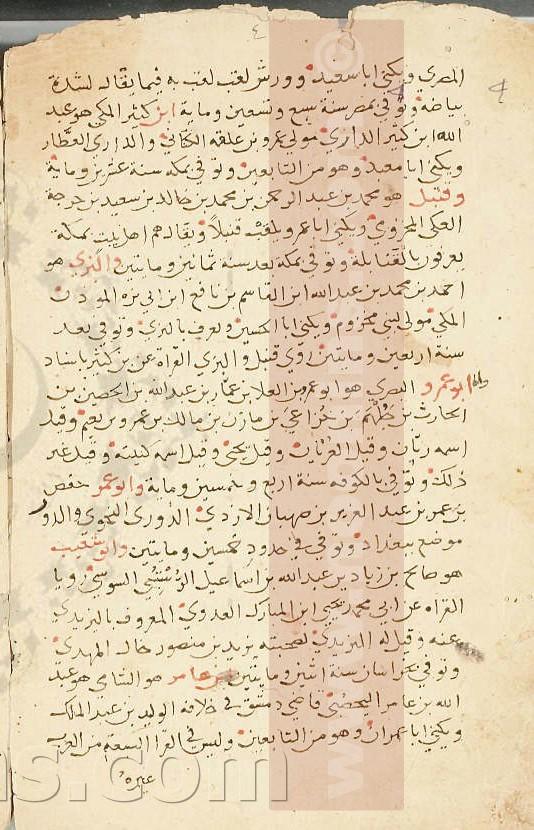 ٤
المصري ويكنى ابا سعيد وورش لقب لقب به فيما يقال لشدة
بياضه وتوفي بمصر سنة سبع وتسعين ومايه ابن كثير المكي هو عبد
الله ابن كثير الداري مولي عمرو بن علقه الكناني والداري العطار
ويكنى ابا معبد وهو من التابعين وتوفي بمكه سنة عشرين وماية
وقنبل هو محمد بن عبد الرحمن بن محمد بن خالد بن سعيد بن جرجة
المكى المخزومي ويكنى ابا عمر ويلقب قنبلا ويقال هم اهل بيت بمكة
يعرفون بالقنابلة وتوفي بمكة بعد سنة ثمانين ومايتين والبزي هو
احمد بن محمد بن عبد الله ابن القاسم بن نافع ابن ابى بزه الموذن
المكي مولى لبني مخزوم ويكنى ابا الحسين ويعرف بالبزى وتوفي بعد
سنة اربعين ومايتين روي قنبل والبزي القراه عن بن كثير باسناد
وابو عمرو البصري هو ابو عمرو بن العلا بن عمار بن عبد الله بن الحصين بن
الحارث بن جلهم بن خزاعي بن مازن بن مالك بن عمرو بن تميم وقيل
اسمه زبان وقيل العريان وقيل يحيى وقيل اسمه كنيته وقيل غير
ذلك وتوفي بالكوفه سنة اربع وخمسين وماية وابو عمر حفص
بن عمر بن عبد العزيز بن صهبان الازدي الدوري النحوي والدور
موضع ببغداد وتوفي في حدود خمسين ومايتين وابو شعيب
هو صالح بن زياد بن عبد الله بن اسماعيل الرستبي السوسي رويا
القراه عن ابي محمد يحيى ابن المبارك العدوي المعروف باليزيدي
عنه وقيل له اليزيدي لصحبته يزيد بن منصور خال المهدي
وتوفي بخراسان سنة اثنين ومايتين ابن عامر هو الشامي هو عبد
الله بن عامر اليحصبي قاضي دمشق في خلافة الوليد بن عبد الملك
ويكنى ابا عمران وهو من التابعين وليس في القرا السبعه من العرب
غيره